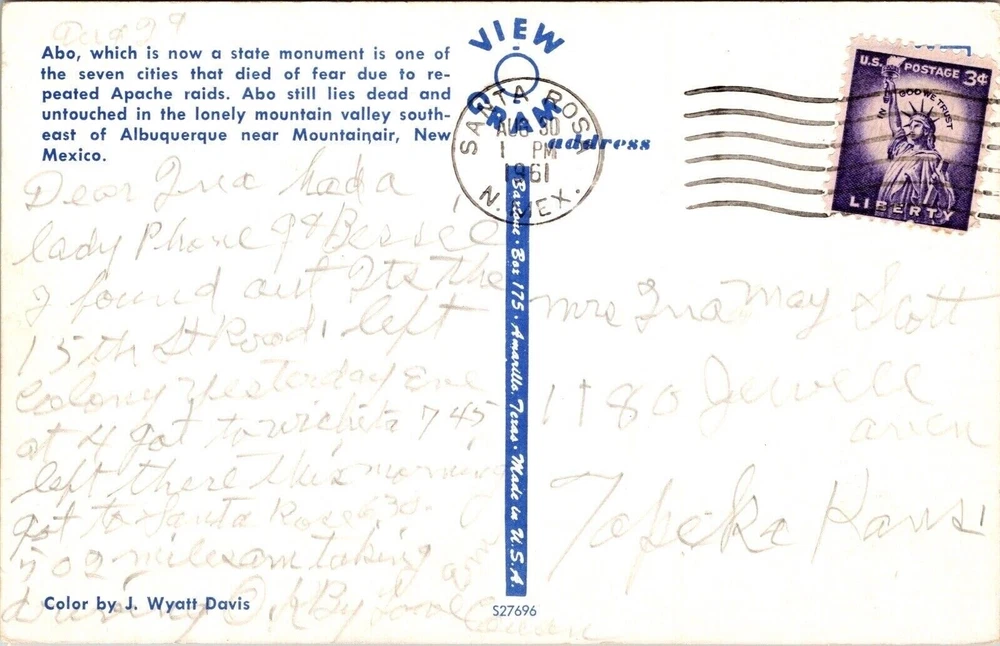 Aug 29
Abo, which is now a state monument is one of
the seven cities that died of fear due to re-
peated Apache raids. Abo still lies dead and
untouched in the lonely mountain valley south-
east of Albuquerque near Mountainair, New
Mexico.
VIEW
GRAM
address
SANTA ROSA
AUG 30
1 PM
1961
N. MEX.
U.S. POSTAGE 3¢
IN GOD WE TRUST
LIBERTY
Dear Ina had a
lady Phone Bessee
I found out Its the
15th St Road, left
Colony yesterday Eve
at 4 got to wichita 745
left there this morning
got to Santa Rosa 630.
502 miles am taking
driving O.K By Love
Mrs Ina May Scott
1180 Jewell
aven
Topeka Kans
Baxtone · Box 175 · Amarillo, Texas · Made in U.S.A.
Color by J. Wyatt Davis
S27696